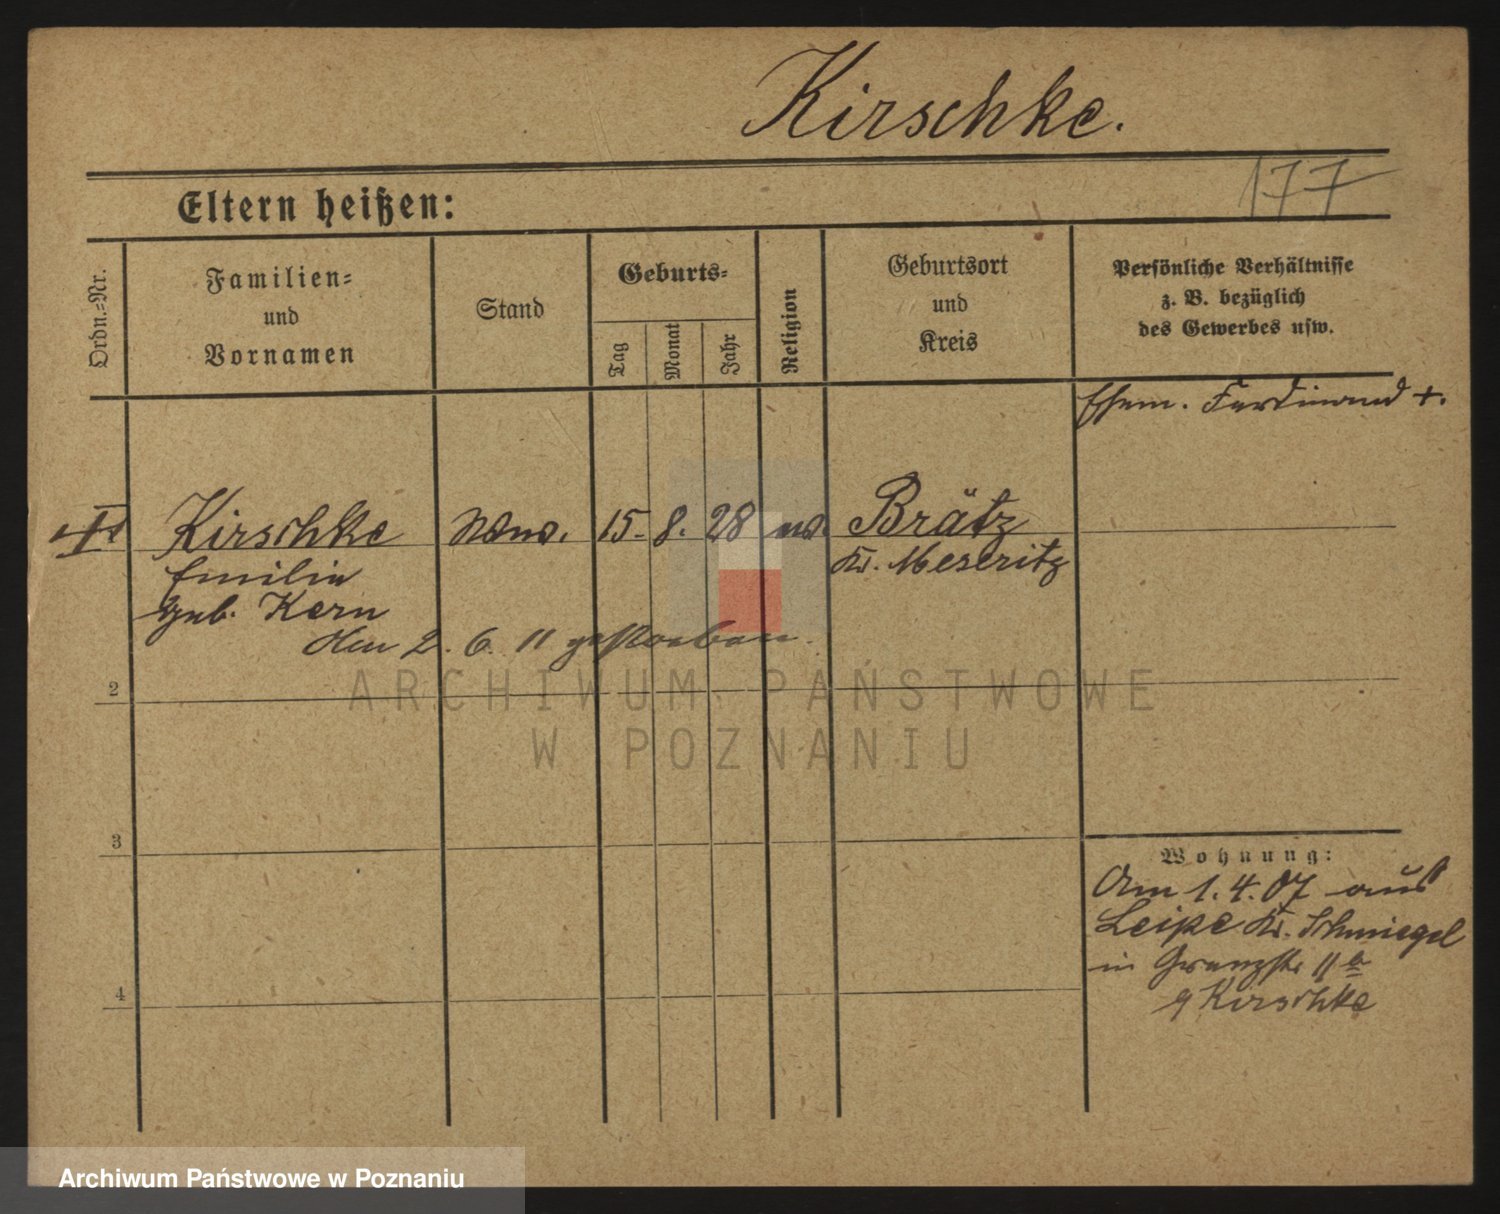 Kirschke.
177
Eltern heißen:
Ordn.-Nr.
Familien-
und
Vornamen
Stand
Geburts-
Tag
Monat
Jahr
Religion
Geburtsort
und
Kreis
Persönliche Verhältnisse
z. B. bezüglich
des Gewerbes usw.
Ehem. Ferdinand +.
Kirschke Wwe. 15. 8. 28 Brätz
Emilie Kr. Meseritz
geb. Kern
Am 2. 6. 11 gestorben.
2
3
4
Wohnung:
Am 1. 4. 07 aus
Leipe Kr. Schmiegel
in Grenzstr 11a
Kirschke
ARCHIWUM PAŃSTWOWE
W POZNANIU
Archiwum Państwowe w Poznaniu